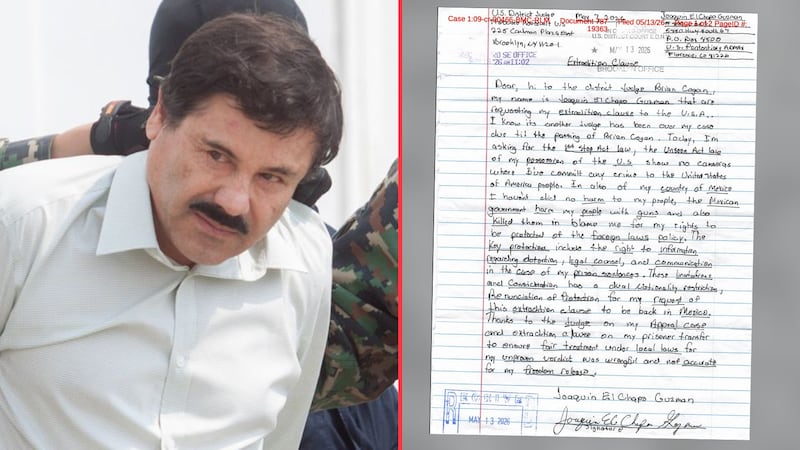 Case 1:09-cr-00466-BMC-RLM Document 787 Filed 05/13/26 Page 1 of 2 PageID #:
19363
U.S. District Judge May 7, 2026 Joaquin El Chapo Guzman
225 Cadman Plaza East P.O. Box 8500
Brooklyn, NY 11201 U.S. Penitentiary Admax
Florence, CO 81226
PRO SE OFFICE
★ MAY 13 2026
BROOKLYN OFFICE
Extradition Clause
Dear, hi to the district Judge Brian Cogan,
my name is Joaquin El Chapo Guzman that are
requesting my extradition clause to the U.S.A..
I know its another judge has been over my case
due til the passing of Brian Cogan. Today, I'm
asking for the 1st step Act law, the Unseen Act law
of my possession of the U.S. show no cameras
where I've committ any crime to the United States
of America people. In also of my country of Mexico
I havint did no harm to my people, the Mexican
government harm my people with guns and also
killed them in blame me for my rights to
be protected of the foreign laws policy. The
key protections include the right to information
regarding detention, legal counsel, and communication
in the case of my prison sentences. These limitations
and consideration has a dual citionality restriction,
Renunciation of Protection for my request of
this extradition clause to be back in Mexico.
Thanks to the Judge on my Appeal case
and extradition clause on my prisoner transfer
to ensure fair treatment under local laws for
my unproven verdict was wrongful and not accurate
for my freedom release.
Joaquin El Chapo Guzman
MAY 13 2026
Joaquin El Chapo Guzman
Signature